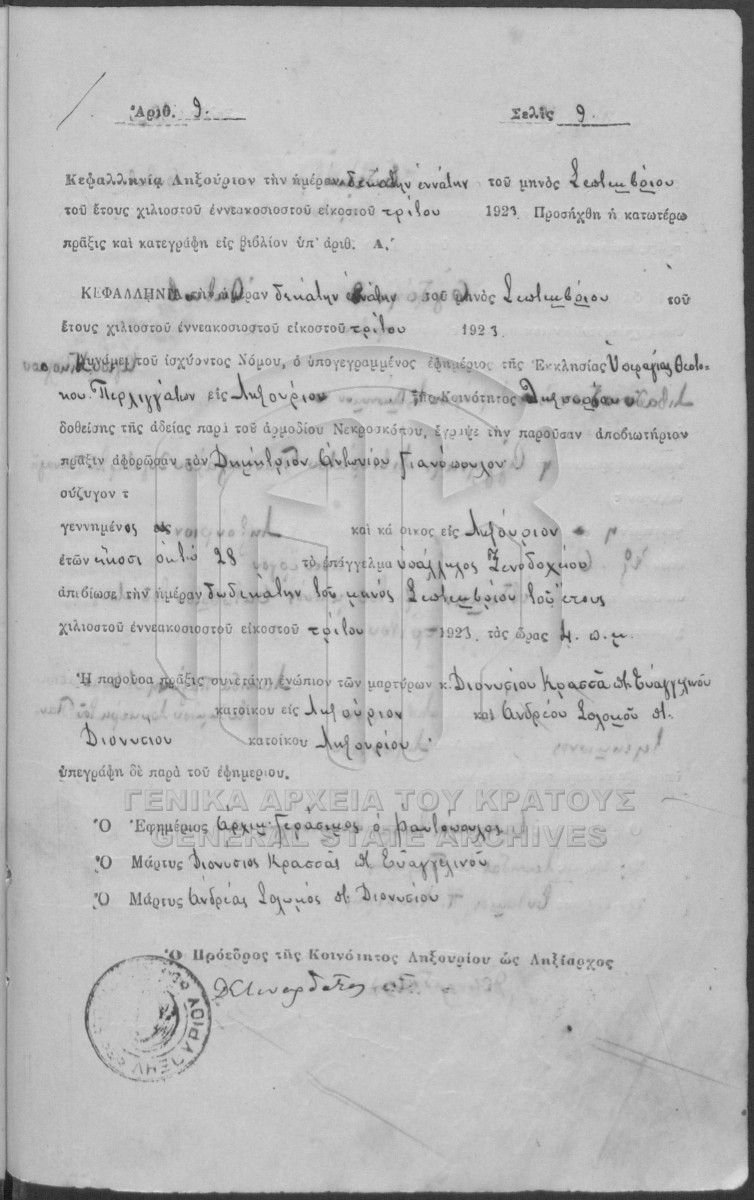 Ἀριθ. 9. Σελὶς 9.
Κεφαλληνία Ληξούριον τὴν ἡμέραν δεκάτην ἐννάτην τοῦ μηνὸς Σεπτεμβρίου
τοῦ ἔτους χιλιοστοῦ ἐννεακοσιοστοῦ εἰκοστοῦ τρίτου 1923. Προσήχθη ἡ κατωτέρω
πρᾶξις καὶ κατεγράφη εἰς βιβλίον ὑπ' ἀριθ. Α.΄
ΚΕΦΑΛΛΗΝΙΑ τὴν ἡμέραν δεκάτην ἐννάτην τοῦ μηνὸς Σεπτεμβρίου τοῦ
ἔτους χιλιοστοῦ ἐννεακοσιοστοῦ εἰκοστοῦ τρίτου 1923.
Δυνάμει τοῦ ἰσχύοντος Νόμου, ὁ ὑπογεγραμμένος ἐφημέριος τῆς Ἐκκλησίας Ὑπεραγίας Θεοτό-
κου Περλιγγάτων εἰς Ληξούριον τῆς Κοινότητος Ληξουρίου
δοθείσης τῆς ἀδείας παρὰ τοῦ ἁρμοδίου Νεκροσκόπου, ἔγραψε τὴν παροῦσαν ἀποβιωτήριον
πρᾶξιν ἀφορῶσαν τὸν Δημήτριον Ἀντωνίου Γιανόπουλον
σύζυγον τ
γεννημένος καὶ κάτοικος εἰς Ληξούριον
ἐτῶν εἴκοσι ὀκτὼ 28 τὸ ἐπάγγελμα ὑπάλληλος Ξενοδοχείου
ἀπεβίωσε τὴν ἡμέραν δωδεκάτην τοῦ μηνός Σεπτεμβρίου τοῦ ἔτους
χιλιοστοῦ ἐννεακοσιοστοῦ εἰκοστοῦ τρίτου 1923 τὰς ὥρας 4. π.μ.
Ἡ παροῦσα πρᾶξις συνετάγη ἐνώπιον τῶν μαρτύρων κ. Διονυσίου Κρασσᾶ π. Εὐαγγελινοῦ
κατοίκου εἰς Ληξούριον καὶ Ἀνδρέου Σολομοῦ π.
Διονυσίου κατοίκου Ληξουρίου
ὑπεγράφη δὲ παρὰ τοῦ ἐφημερίου.
ΓΕΝΙΚΑ ΑΡΧΕΙΑ ΤΟΥ ΚΡΑΤΟΥΣ
Ὁ Ἐφημέριος Ἀρχιμ. Γεράσιμος
GENERAL STATE ARCHIVES
Ὁ Μάρτυς Διονυσιος Κρασσᾶς π. Εὐαγγελινοῦ
Ὁ Μάρτυς Ἀνδρέας Σολομός π. Διονυσίου
Ὁ Πρόεδρος τῆς Κοινότητος Ληξουρίου ὡς Ληξίαρχος
ΛΗΞΟΥΡΙΟΥ